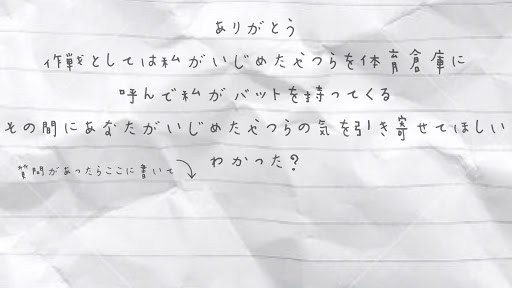 ありがとう
作戦としては私がいじめたやつらを体育倉庫に
呼んで私がバットを持ってくる
その間にあなたがいじめたやつらの気を引き寄せてほしい
わかった?
質問があったらここに書いて